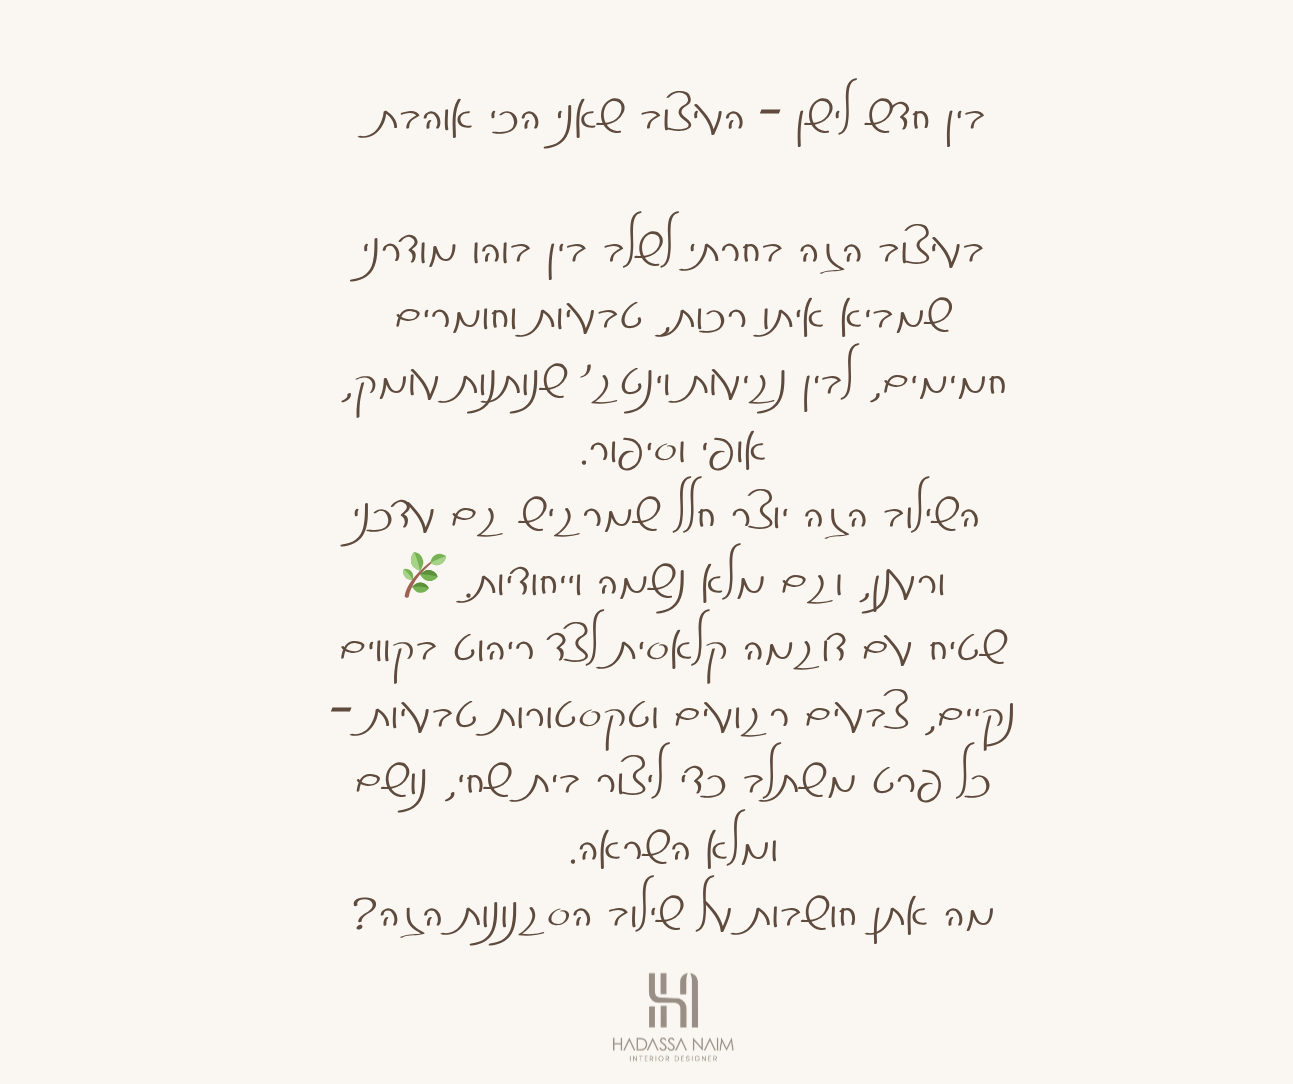 בין חדש לישן - העיצוב שאני הכי אוהבת
בעיצוב הזה בחרתי לשלב בין בוהו מודרני
שמביא איתו רכות, טבעיות וחומרים
חמימים, לבין נגיעות וינטג' שנותנות עומק,
אופי וסיפור.
השילוב הזה יוצר חלל שמרגיש גם עדכני
ורענן, וגם מלא נשמה וייחודיות. 🌿
שטיח עם דוגמה קלאסית לצד ריהוט בקווים
נקיים, צבעים רגועים וטקסטורות טבעיות -
כל פרט משתלב כדי ליצור בית שחי, נושם
ומלא השראה.
מה אתן חושבות על שילוב הסגנונות הזה?
HADASSA NAIM
INTERIOR DESIGNER